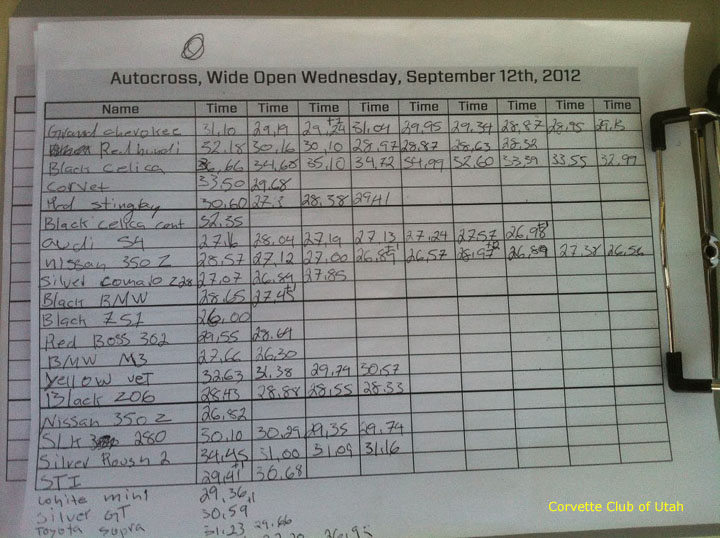 Autocross, Wide Open Wednesday, September 12th, 2012
Name Time Time Time Time Time Time Time Time Time
Grand cherokee 31.10 29.19 29.24 +1 31.04 29.95 29.34 28.87 28.95
Red hundi 32.18 30.16 30.10 28.97 28.87 28.63 28.52
Black Celica 36.66 34.68 35.10 34.72 34.99 32.60 33.39 33.55 32.99
Corvet 33.50 29.68
Red stingray 30.60 27.3 28.38 29.41
Black celica cont 32.35
audi S4 27.16 28.04 27.19 27.13 27.24 27.57 26.98 +1
Nissan 350Z 28.57 27.12 27.00 26.89 +1 26.57 28.97 +2 26.89 27.38 26.56
Silver Comaro Z28 27.07 26.84 27.85
Black BMW 28.65 27.45 +1
Black Z51 26.00
Red Boss 302 29.55 28.64
BMW M3 27.66 26.30
Yellow vet 32.63 31.38 29.74 30.57
Black Z06 28.43 28.88 28.55 28.33
Nissan 350Z 26.82
SLK 280 30.10 30.29 29.35 29.74
Silver Roush 2 34.45 31.00 31.09 31.16
STI 29.41 +1 30.68
White mini 29.36
Silver GT 30.59
Toyota Supra 31.23 29.66
26.95
Corvette Club of Utah